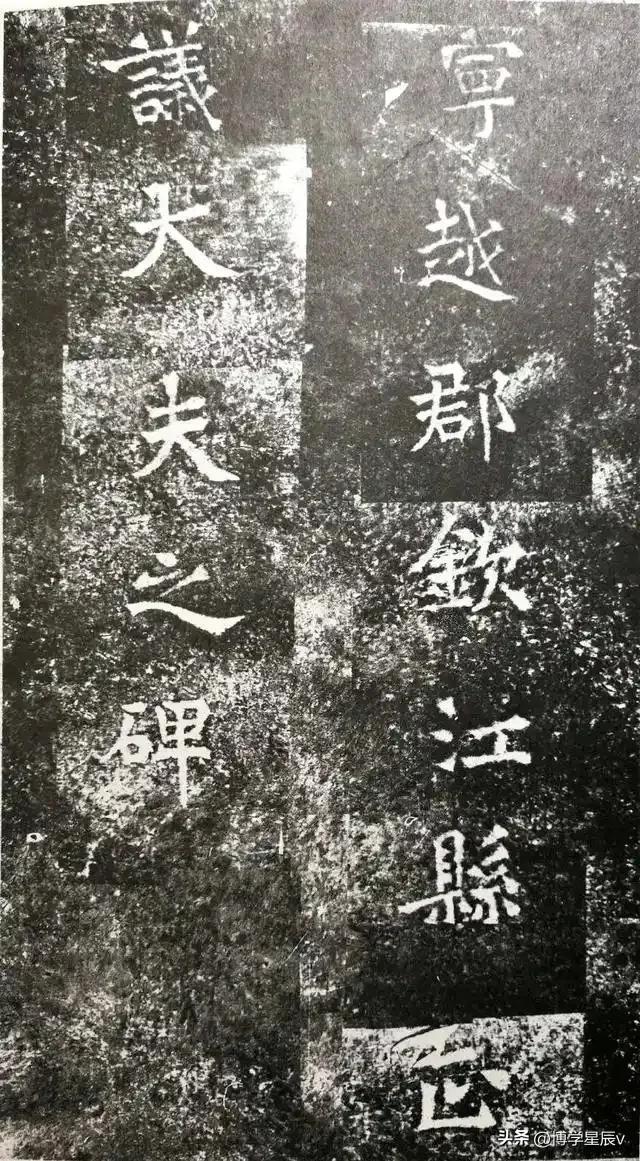 寧越郡欽江縣正
議大夫之碑
头条 @博学星辰v